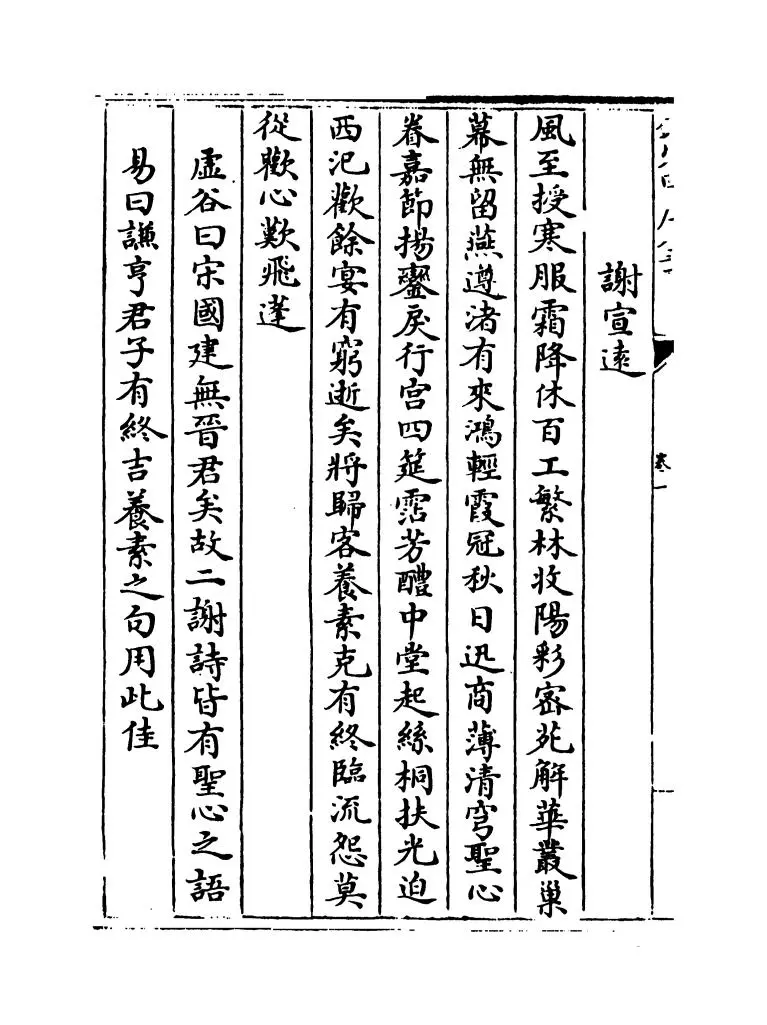 謝宣遠
風至授寒服霜降休百工繁林收陽彩宻苑解華叢巢
幕無留燕遵渚有來鴻輕霞冠秋日迅商薄清穹聖心
眷嘉節揚鑾戾行宫四筵霑芳醴中堂起絲桐扶光迫
西汜歡餘宴有窮逝矣將歸客養素克有終臨流怨莫
從歡心歎飛蓬
虚谷曰宋國建無晉君矣故二謝詩皆有聖心之語
易曰謙亨君子有終吉養素之句用此佳
卷一